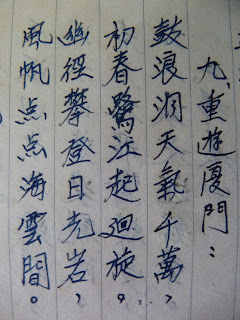 九、重遊廈門：
鼓浪洞天氣千萬，
初春鷺江起迴旋，
幽徑攀登日光岩，
風帆点点海雲間。